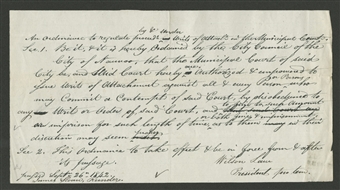 by & under
An ordinance to regulate proceedings Writs of Attacht. in the Municipal Court.
Sec. 1. Be it, & it is hereby Ordained by the City Council of the
City of Nauvoo, that the Municipal Court of said
City be, and said Court hereby is Authorized & empowered to
issue Writs of Attachment against all & any Person, who
or Persons
may Commit a Contempt of said Court, by disobedience to
any Writ or Order of said Court, and to fine such
or imprison for such lengths of time, as to them in their
or both fine & imprisonment
discretion may seem
Sec. 2. This Ordinance to take effect & be in force from & after
its passage.
Wilson Law
passed Septr. 26th. 1842.
President, pro tem.
James Sloan, Recorder.